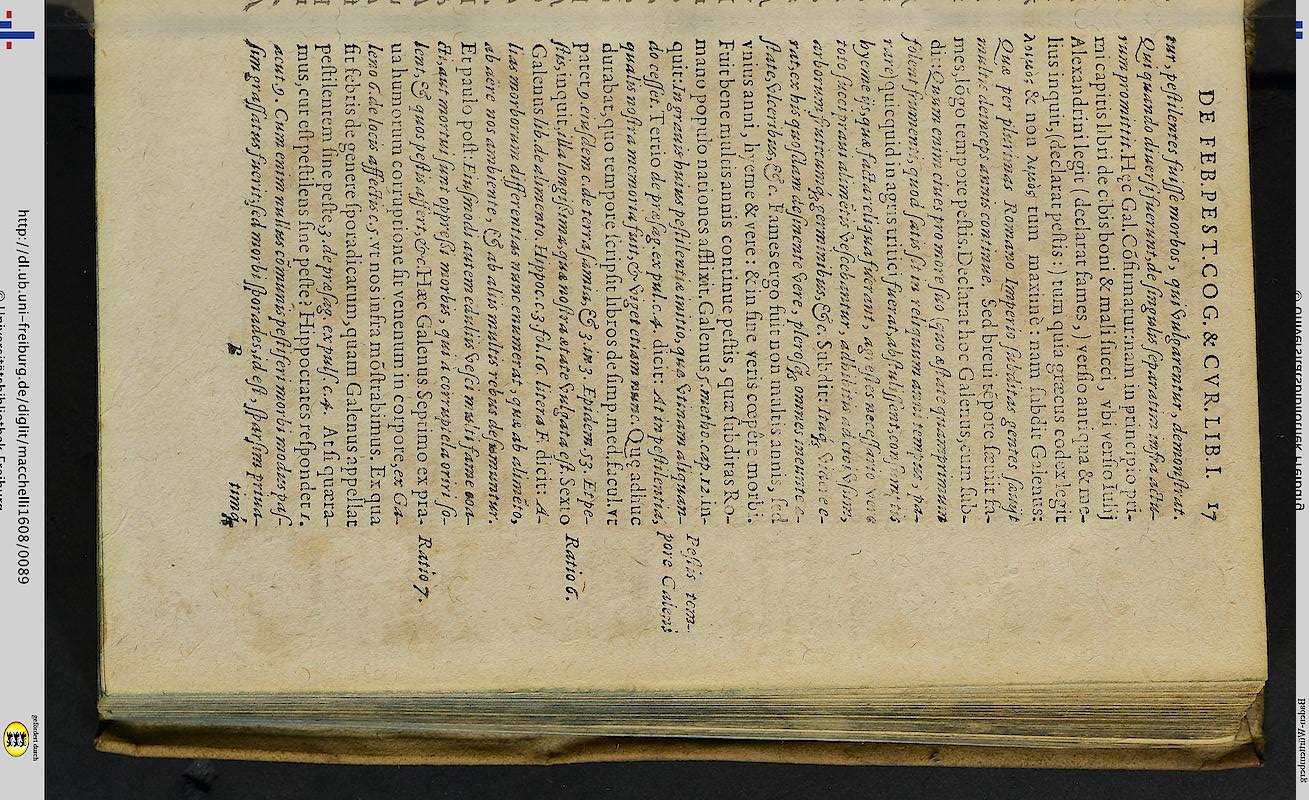 DE FEB. PEST. COG. & CVR. LIB. I. 17
tur, pestilentes fuisse morbos, qui vulgarentur, demonstrat.
Qui quando diuersi fuerunt, de singulis separatim infra actu-
rum promittit. Hęc Gal. Cōfirmatur: nam in principio pri-
mi capitis libri de cibis boni & mali succi, vbi versio Iulij
Alexandrini legit (declarat fames,) versio antiqua & me-
lius inquit, (declarat pestis:) tum quia græcus codex legit
λοιμὸς & non λιμὸς tum maximè: nam subdit Galenus:
Quæ per plurimas Romano Imperio subditas gentes sæuijt
multis deinceps annis continuè. Sed breui tēpore sæuit fa-
mes, lōgo tempore pestis. Declarat hoc Galenus, cum sub-
dit: Quum enim ciues pro more suo (quo æstate quamprimum
solent frumenti, quod satis sit in reliquum anni tempus, pa-
rare) quicquid in agris tritici fuerat, abstulissent,
hyeme ijs, quæ facta reliqua fuerant, agrestes necessario vere
toto succi praui alimētis vescebantur, adhibitis ad
arborum, fruticumq́; germinibus, &c. Subdit: Itaq́;
rat, ex his quosdam
state, vlceribus, &c. Fames ergo fuit non multis annis, sed
vnius anni, hyeme & vere: & in fine veris cœpêre morbi.
Fuit bene multis annis continue pestis, quæ subditas Ro-
mano populo nationes afflixit. Galenus 5. metho. cap. 12. in-
quit: In grauis huius pestilentiæ initio, quæ vtinam aliquan-
do cesset. Tertio de præsag. ex pul. c. 4. dicit: At in pestilentia,
qualis nostra memoria fuit, & viget etiam nunc. Quę adhuc
durabat, quo tempore scripsit libros de simp. med. facul. vt
patet 9. eiusdem c. de terra samia, & 3. in 3. Epidem. 53. Et pe-
stis, inquit, illa longissima, quæ nostra ætate vulgata est. Sexto
Galenus lib. de alimento. Hippoc. c. 3. fol. 16. litera F. dicit: A-
lias morborum differentias nunc enumerat, quæ ab alimēto,
ab aëre nos ambiente, & ab alijs multis rebus desumuntur.
Et paulo post: Eiusmodi autem edulijs vesci multi fame coa-
cti, aut mortui sunt oppressi morbis, qui a corruptela oriri so-
lent, & quos pestis affert, &c. Hæc Galenus. Septimo ex pra-
ua humorum corruptione fit venenum in corpore, ex Ga-
leno 6. de locis affectis c. 5. vt nos infra mōstrabimus. Ex qua
fit febris de genere sporadicarum, quam Galenus appellat
pestilentem sine peste, 3. de præsag. ex puls. c. 4. At si quæra-
mus, cur est pestilens sine peste? Hippocrates respondet 1.
acut. 9. Cum enim nullus communis pestiferi morbi modus pas-
sim grassatus fuerit, sed morbi sporades, id est, sparsim priua-
B timq́;
Pestis tem-
pore Galeni
Ratio 6.
Ratio 7.
http://dl.ub.uni-freiburg.de/diglit/macchelli1608/0089
© Universitätsbibliothek Freiburg
gefördert durch
Baden-Württemberg